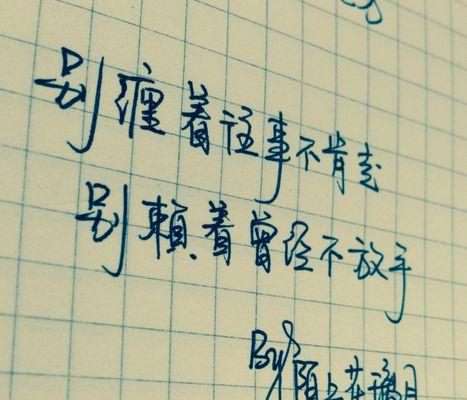 别缠着往事不肯走
别賴着曾经不放手
By 陌上